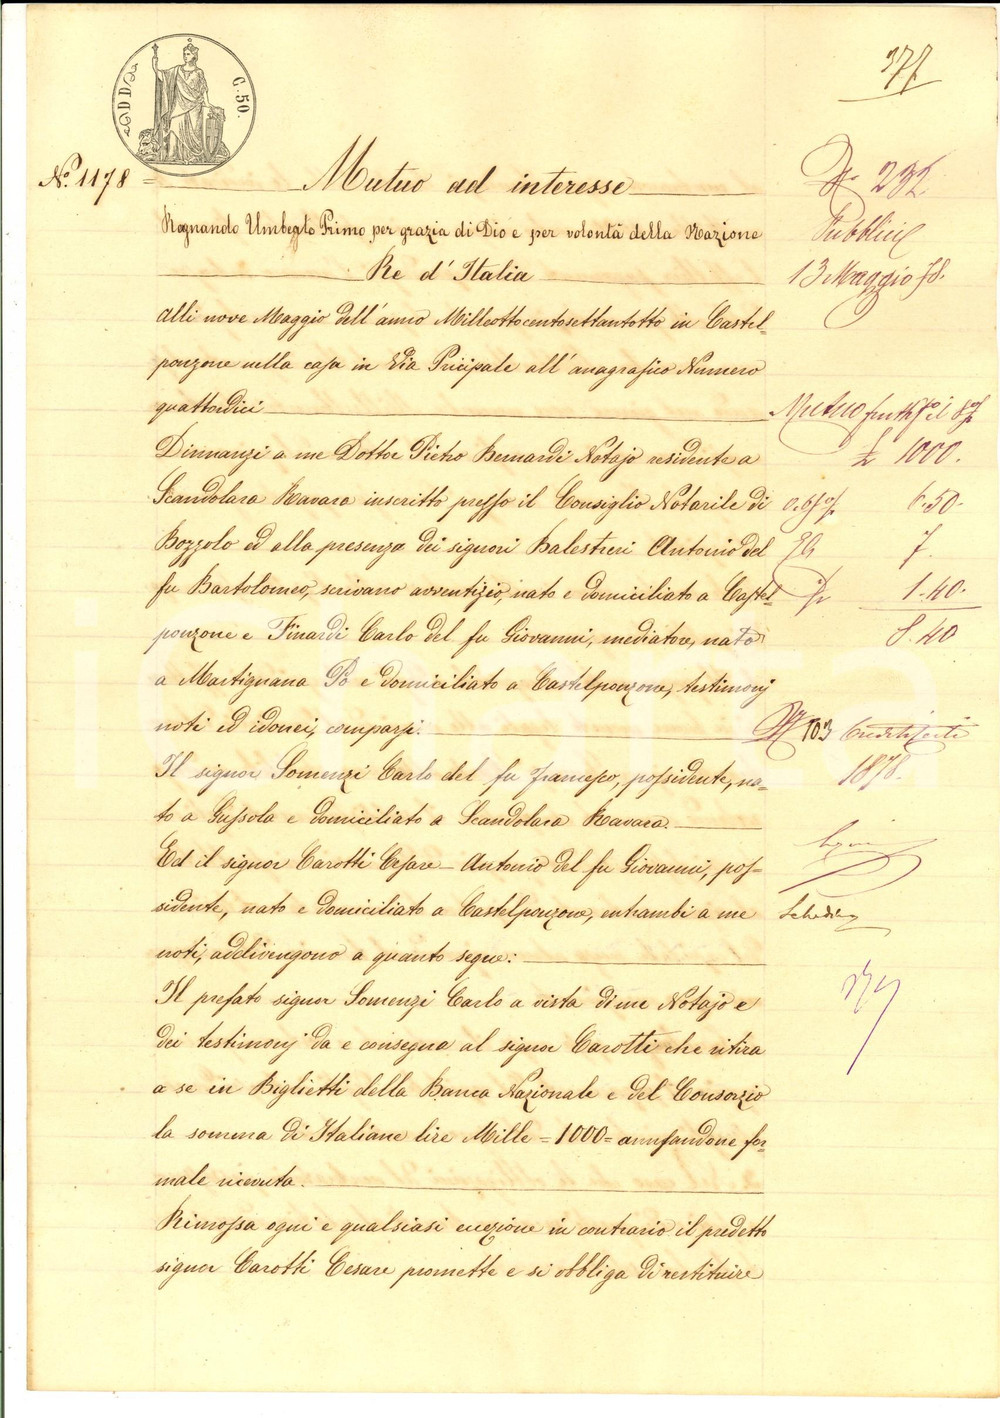 C. 50.
377
N.º 1178 = Mutuo ad interesse
Regnando Umberto Primo per grazia di Dio e per volontà della Nazione
Re d'Italia
Alli nove Maggio dell'anno Milleottocentosettantotto in Castel-
ponzone nella casa in Via Pricipale all'anagrafico Numero
quattordici
Dinnanzi a me Dottor Pietro Bernardi Notajo residente a
Scandolara Ravara inscritto presso il Consiglio Notarile di
Bozzolo ed alla presenza dei signori Balestrieri Antonio del
fu Bartolomeo, scrivano avventizio, nato e domiciliato a Castel-
ponzone e Finardi Carlo del fu Giovanni, mediatore, nato
a Martignana Po e domiciliato a Castelponzone, testimonj
noti ed idonei, comparsi.
Il signor Somenzi Carlo del fu Francesco, possidente, na-
to a Gussola e domiciliato a Scandolara Ravara.
Ed il signor Carotti Cesare-Antonio del fu Giovanni, pos-
sidente, nato e domiciliato a Castelponzone, entrambi a me
noti, addivengono a quanto segue:
Il prefato signor Somenzi Carlo a vista di me Notajo e
dei testimonj da e consegna al signor Carotti che ritira
a se in Biglietti della Banca Nazionale e del Consorzio
la somma di Italiane lire Mille = 1000 = annfandone for-
male ricevuta.
Rimossa ogni e qualsiasi eccezione in contrario il predetto
signor Carotti Cesare promette e si obbliga di restituire
Nº 232
Pubblici
13 Maggio 78.
Mutuo
£ 1000.
0.65 % 6.50.
7.
1.40.
8.40
Nº 103
1878.